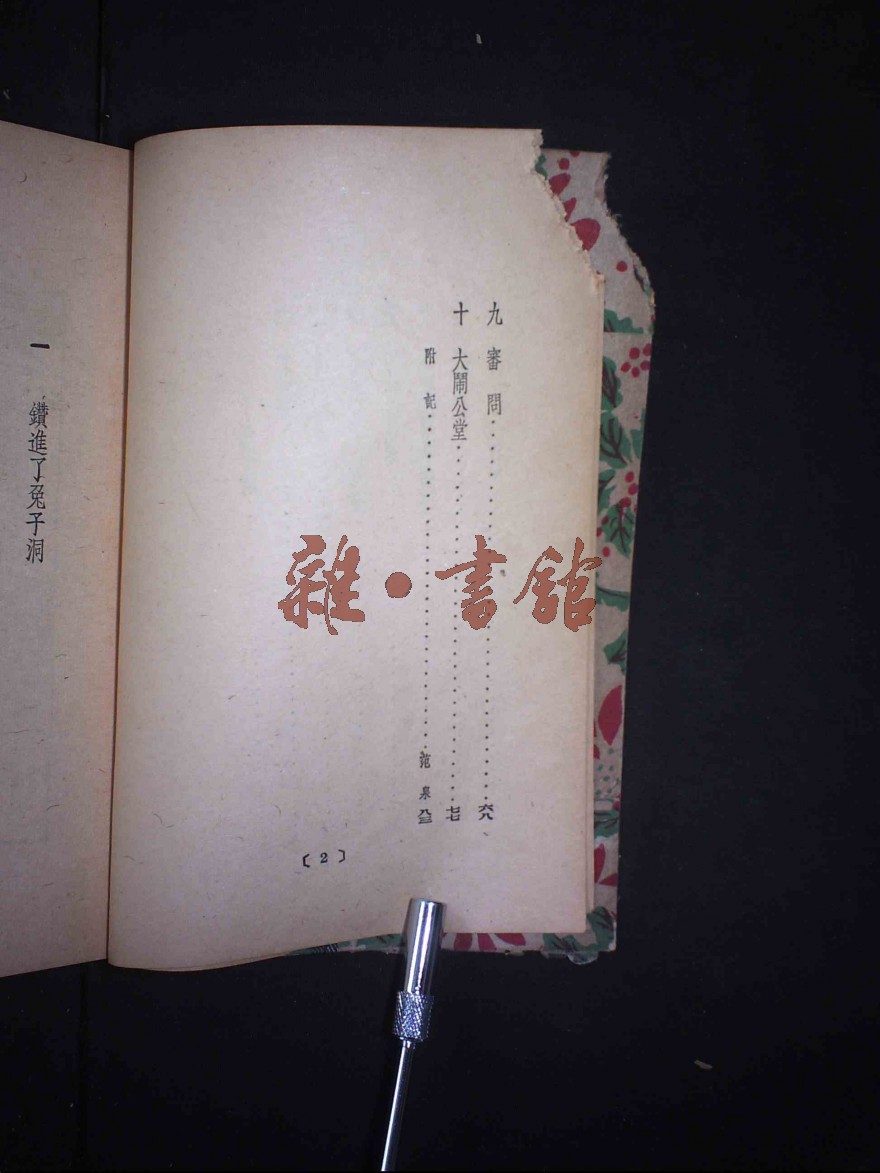 九 審問……六八
十 大鬧公堂……七七
附記……范泉 八三
〔2〕
一 鑽進了兔子洞
雜·書館